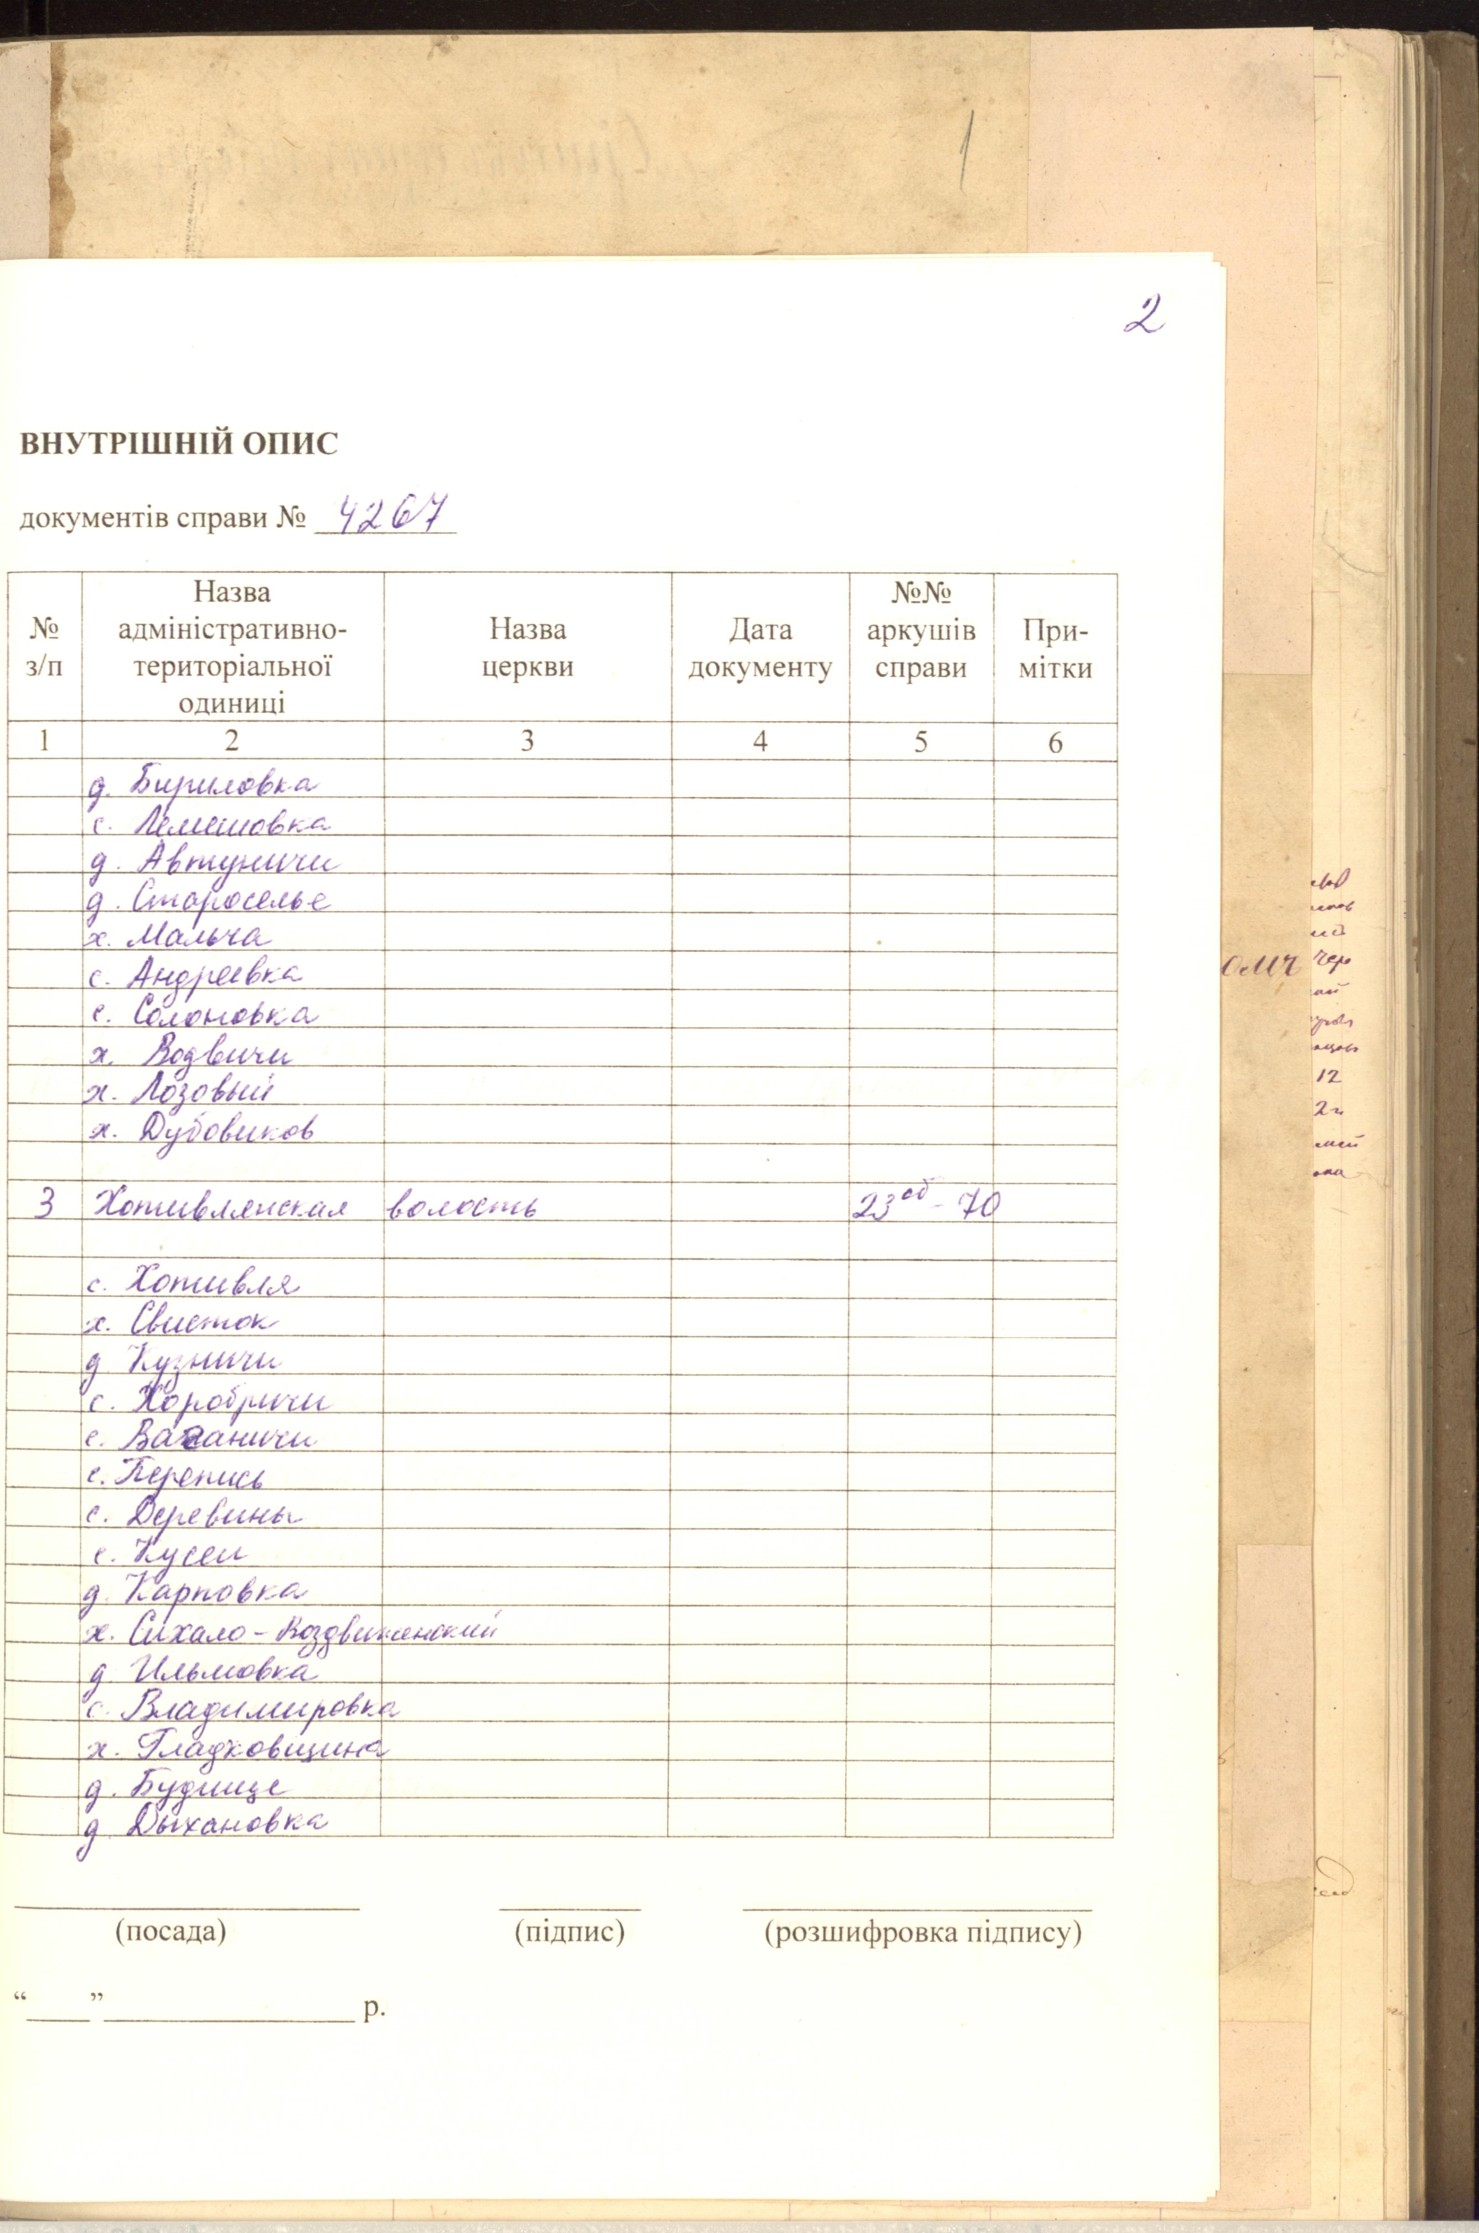 1
2
ВНУТРІШНІЙ ОПИС
документів справи № 4267
№ з/п
Назва адміністративно-територіальної одиниці
Назва церкви
Дата документу
№№ аркушів справи
При-мітки
1 2 3 4 5 6
д. Бириловка
с. Лемешовка
д. Автуничи
д. Староселье
х. Мальча
с. Андреевка
с. Солоновка
х. Водвичи
х. Лозовый
х. Дубовиков
3 Хотивлянская волость 23об - 70
с. Хотивля
х. Свисток
д Кузничи
с. Хоробричи
с. Ваганичи
с. Перепись
с. Деревины
с. Кусеи
д. Карповка
х. Сихало-Воздвиженский
д Ильмовка
с. Владимировка
х. Гладковщина
д. Будище
д Дыхановка
(посада) (підпис) (розшифровка підпису)
“ ” р.